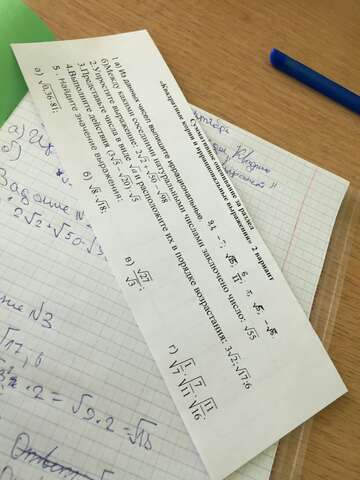 Суммативное оценивание за раздел
«Квадратные корни и иррациональные выражения» 2 вариант
1 а) Из данных чисел выпишите иррациональные:
б)Между какими соседними натуральными числами заключено число: √55
2.Упростите выражение: 2√2 + √50 − √98
3.Представьте числа в виде √a и расположите их в порядке возрастания: 3√2; √17; 6
4.Выполните действия (3√5 − √20) · √5
5 . Найдите значение выражения:
а) √0,36·81;
б) √8 · √18;
в) √27/√3;
г) √(1/7) · √(7/11) · √(11/16)
а)
б)
Задание №
2√2 + √50 −
№3
√17, 6
· 2 = √9·2 = √18
Ответ